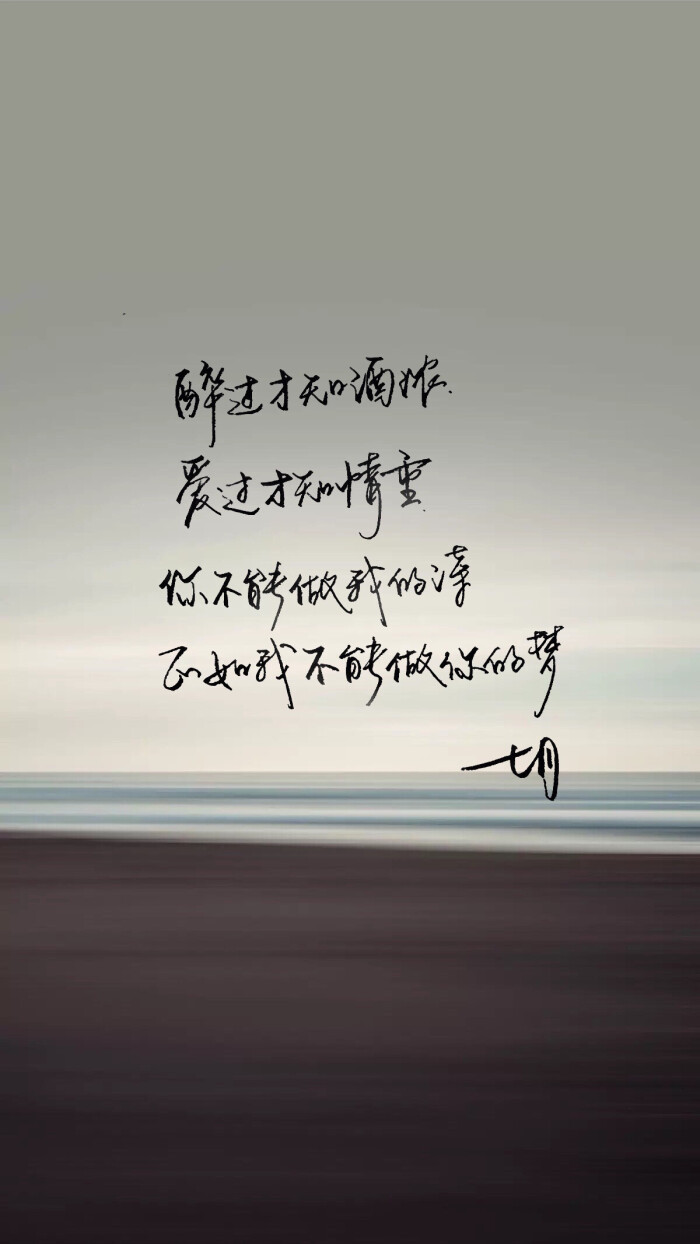 醉过才知酒浓
爱过才知情重
你不能做我的诗
正如我不能做你的梦
七月